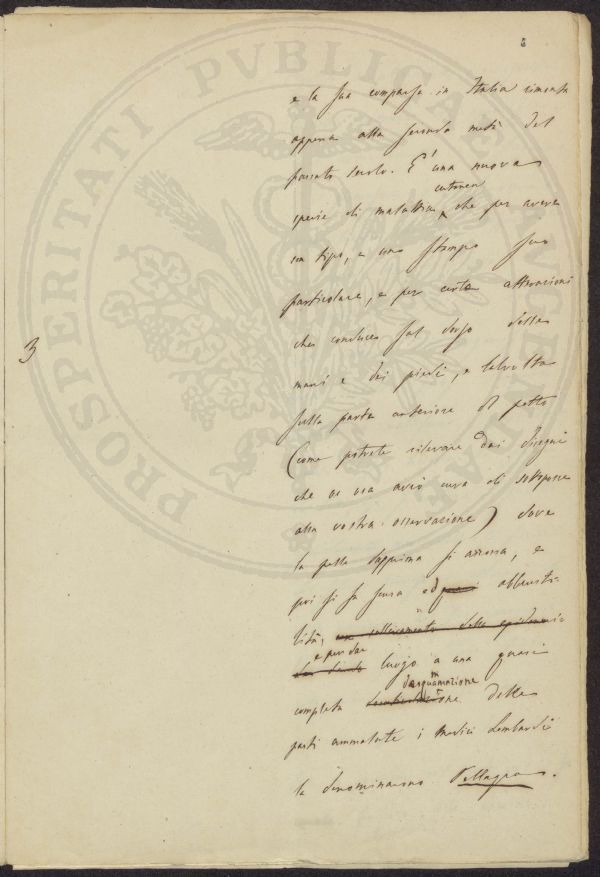 5
e la sua comparsa in Italia rimonta
appena alla seconda metà del
passato secolo. E' una nuova
cutanea
specie di malattia, che per avere
un tipo, e uno stampo suo
particolare, e per certe alterazioni
che conduce sul dorso delle
mani e dei piedi, e talvolta
3
sulla parte anteriore del petto
(come potrete rilevare dai disegni
che or ora avrò cura di sottoporre
alla vostra osservazione) dove
la pelle dapprima si arrossa, e
poi si fa scura ed abbrusto-
lita, sollevamento della epidermide
e per dar
luogo a una quasi
desquamazione
completa delle
parti ammalate i Medici Lombardi
la denominarono Pellagra.
PROSPERITATI PVBLICAE AVGENDAE